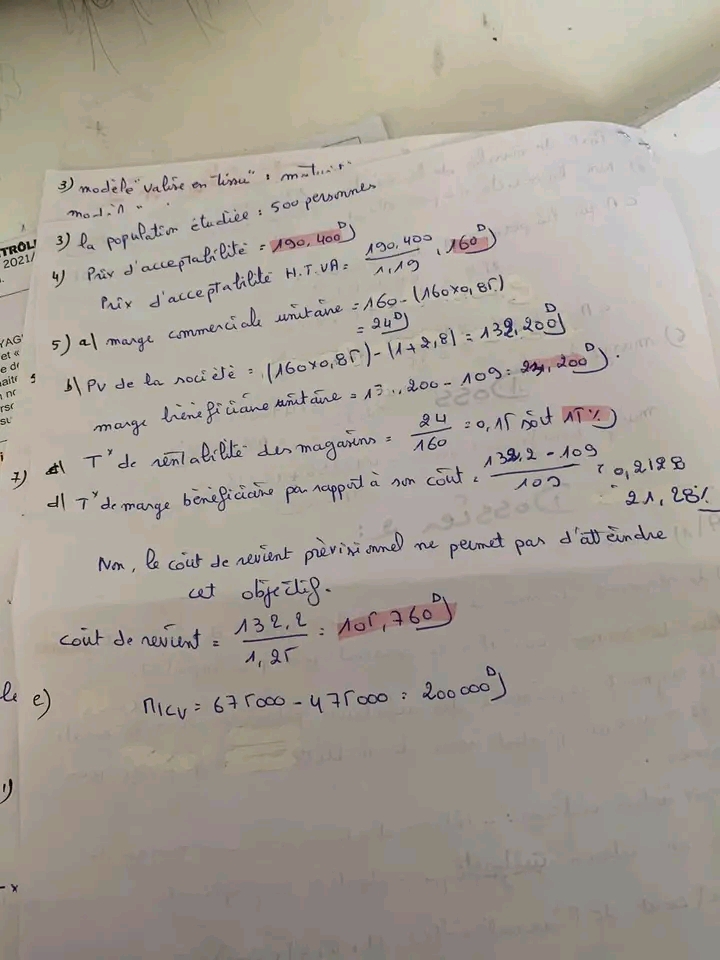 3) modèle "valise en tissu" :
3) la population étudiée : 500 personnes
4) Prix d'acceptabilité = 190,400 D
Prix d'acceptabilité H.T.VA = 190,400 / 1,19 = 160 D
5) a) marge commerciale unitaire = 160 - (160 x 0,85)
= 24 D
b) PV de la société = (160 x 0,85) - (1 + 2,8) = 132,200 D
marge bénéficiaire unitaire = 13.,200 - 109 = 23,200 D.
7) d) Tx de rentabilité des magasins = 24 / 160 = 0,15 soit 15%
d) Tx de marge bénéficiaire par rapport à son coût = 132,2 - 109 / 109 = 0,2128
= 21,28%
Non, le coût de revient prévisionnel ne permet pas d'atteindre
cet objectif.
coût de revient = 132,2 / 1,25 = 105,760 D
e) M/CV = 675000 - 475000 = 200000 D
TRÔL
2021/
YAG
et «